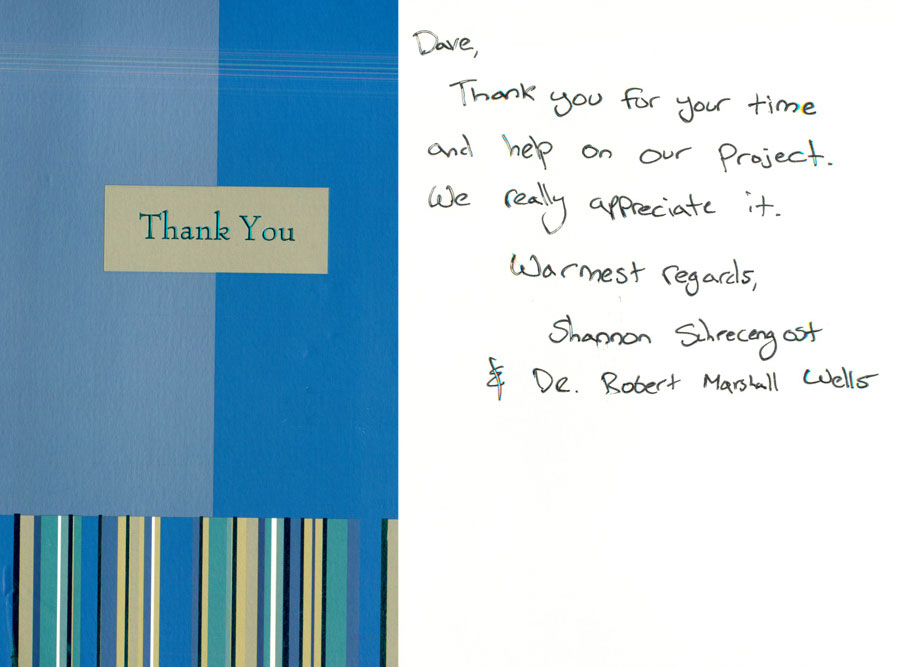 Thank You
Dave,
Thank you for your time
and help on our Project.
We really appreciate it.
Warmest regards,
Shannon Schrecengost
& Dr. Robert Marshall Wells